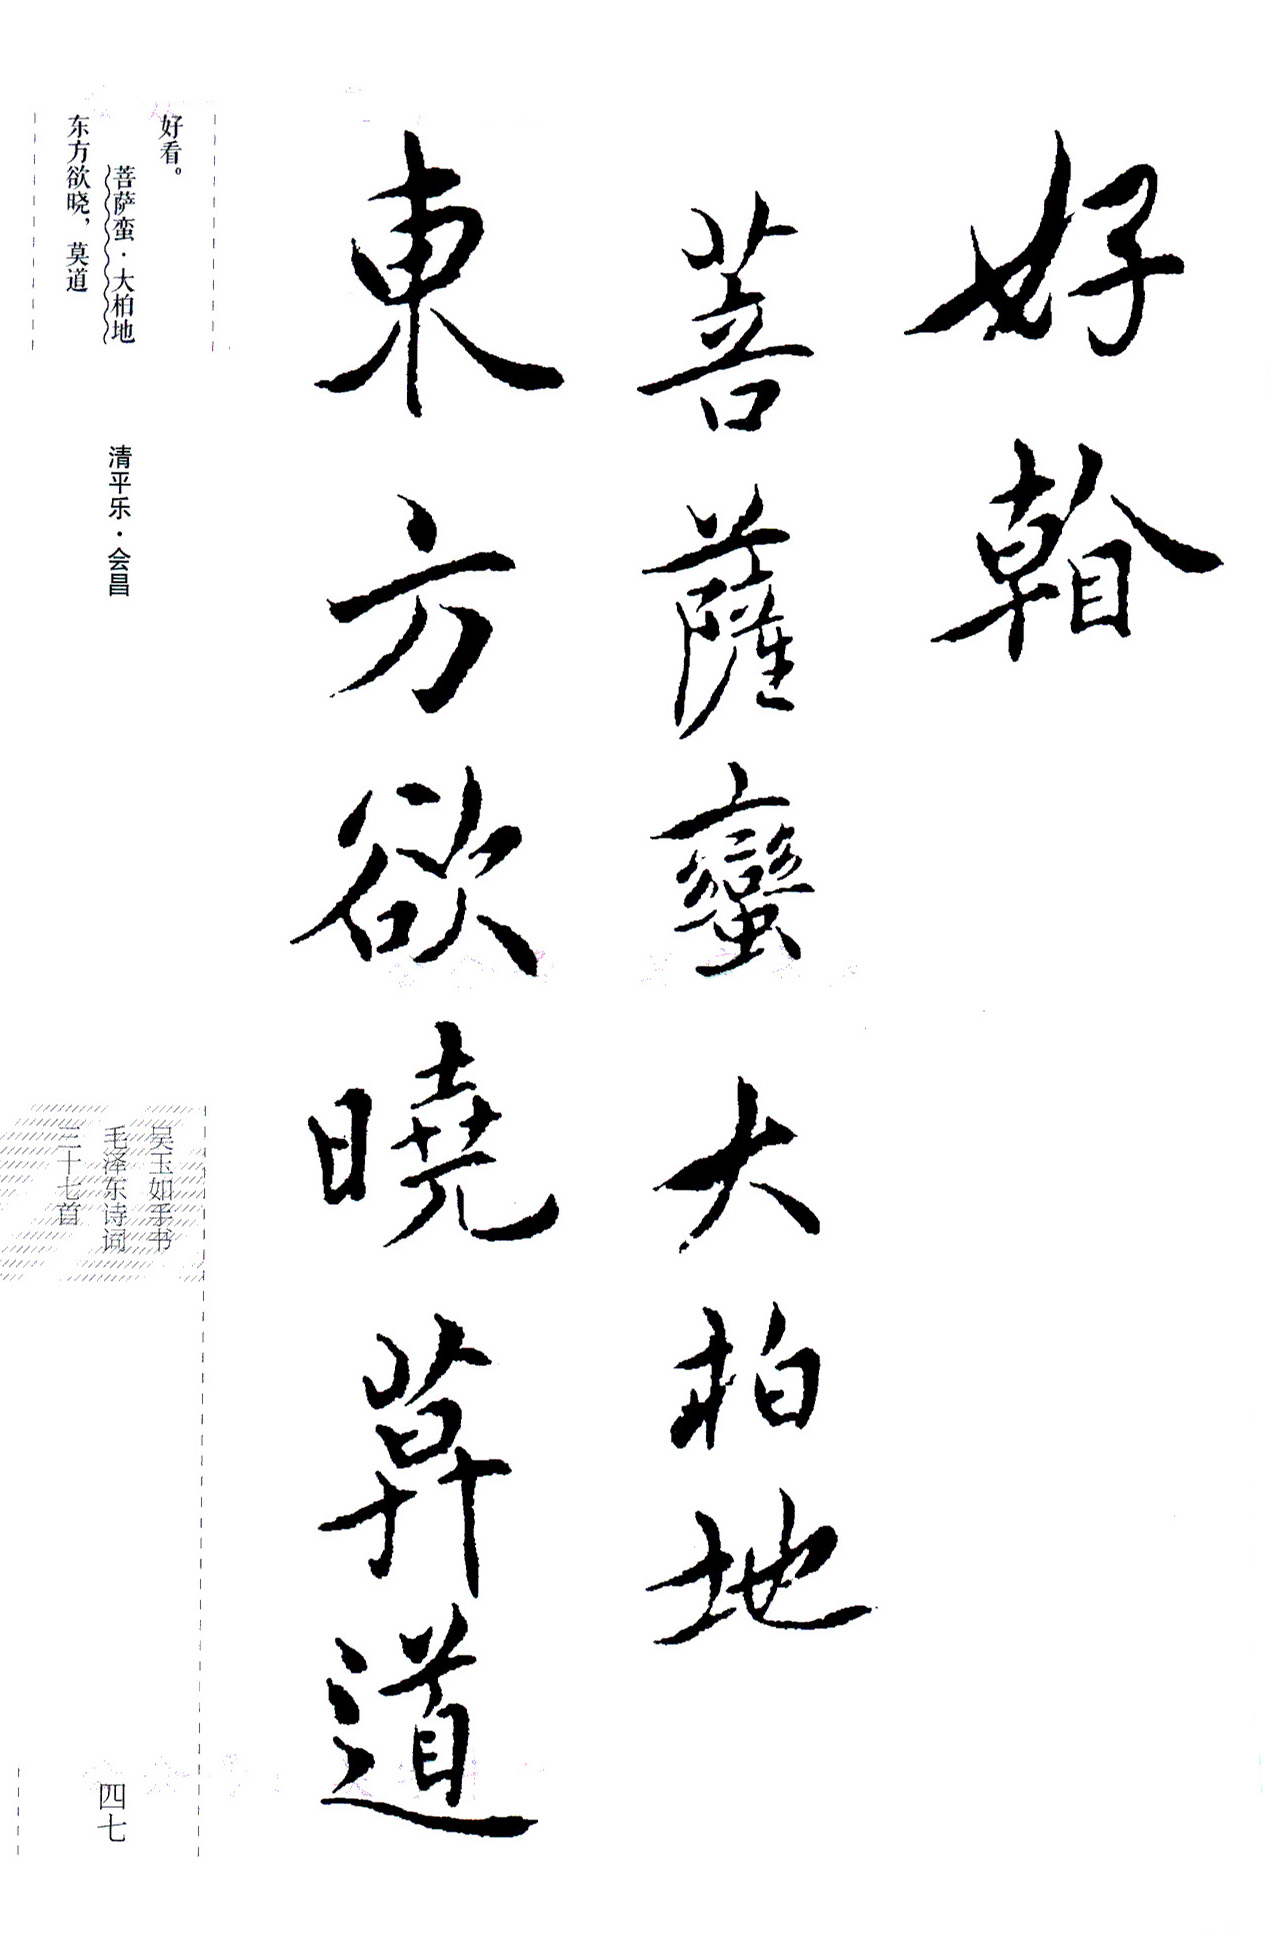 好看
菩薩蠻大柏地
東方欲曉莫道
好看。
菩萨蛮·大柏地
东方欲晓，莫道
清平乐·会昌
吴玉如手书
毛泽东诗词
三十七首
四七